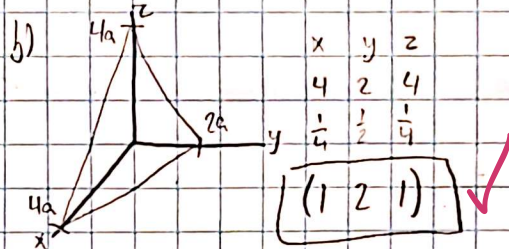 b)
z
4a
2a
y
4a
x
x y z
4 2 4
1/4 1/2 1/4
(1 2 1)